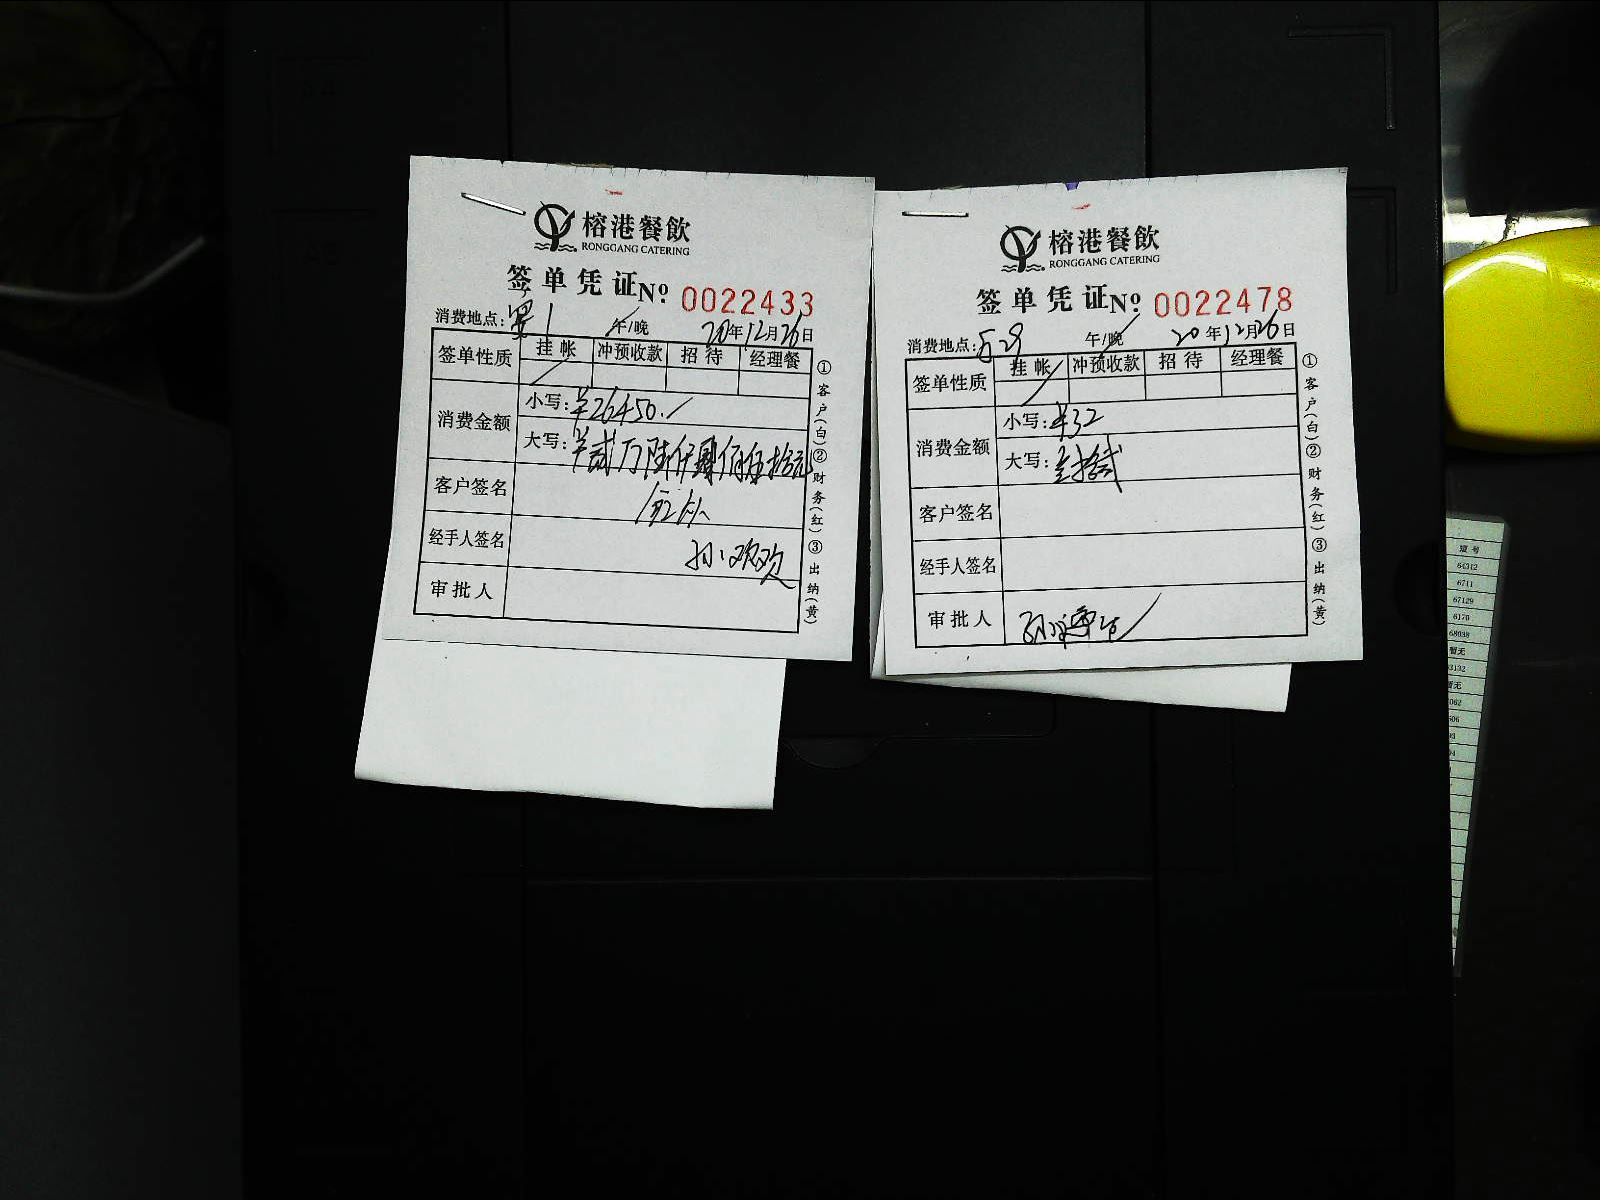 榕港餐飲
RONGGANG CATERING
签单凭证 № 0022433
消费地点: 1 午/晚 20年12月26日
签单性质 挂帐 冲预收款 招待 经理餐
消费金额 小写: ¥26450.
大写: ¥贰万陆仟肆佰伍拾元
客户签名
经手人签名 孙欢欢
审批人
①客户(白)②财务(红)③出纳(黄)
榕港餐飲
RONGGANG CATERING
签单凭证 № 0022478
消费地点: 29 午/晚 20年12月26日
签单性质 挂帐 冲预收款 招待 经理餐
消费金额 小写: ¥32
大写: 叁拾贰
客户签名
经手人签名
审批人
①客户(白)②财务(红)③出纳(黄)
64312
6711
67129
6170
68038
暂无